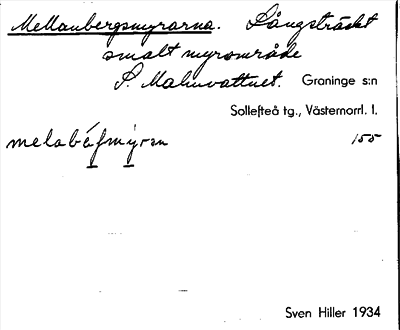 Mellanbergsmyrarna. Långsträckt
smalt myrområde
S. Malmvattnet. Graninge s:n
Sollefteå tg., Västernorrl. l.
melabáfmýran 155
Sven Hiller 1934